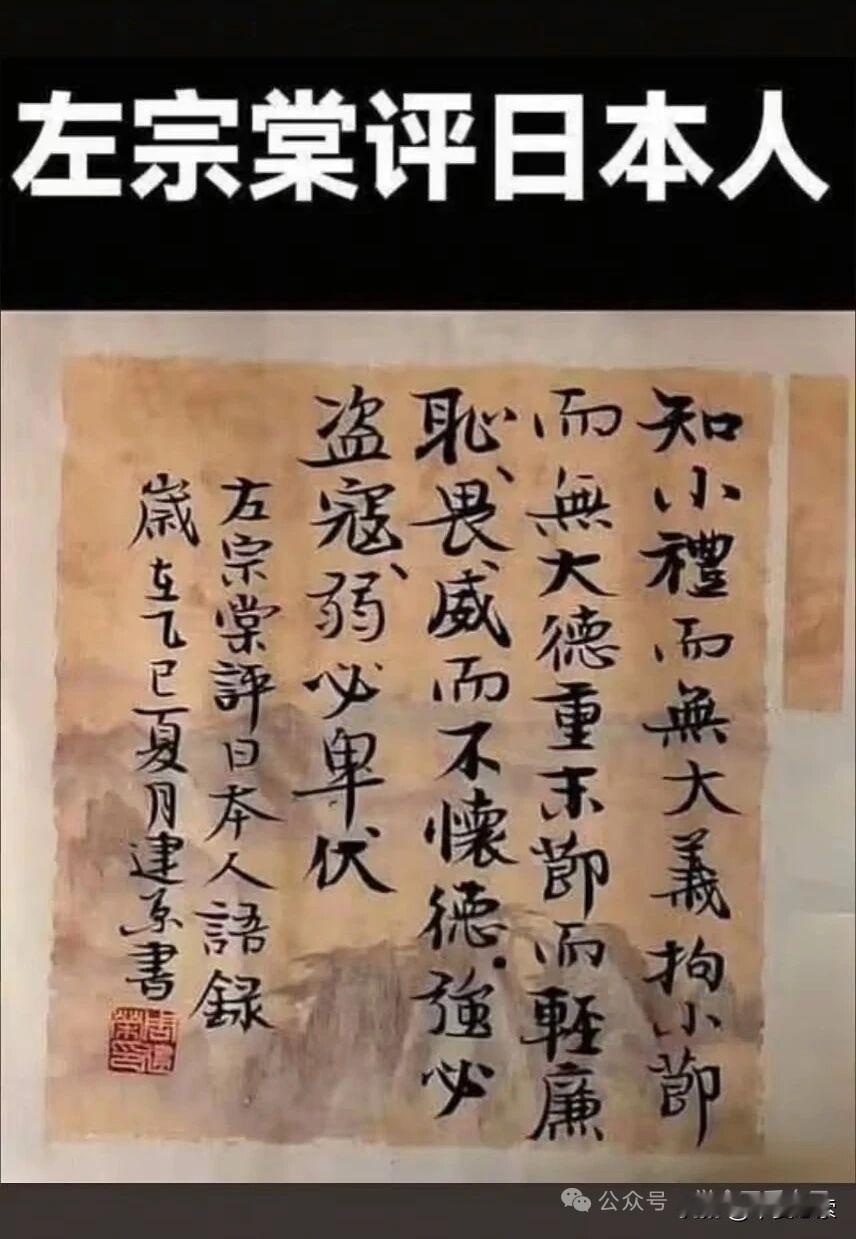 左宗棠评日本人
知小禮而無大義拘小節
而無大德重末節而輕廉
恥、畏威而不懷德.強必
盗寇、弱必卑伏
左宗棠評日本人語録
歲在乙巳夏月建京書
公众号